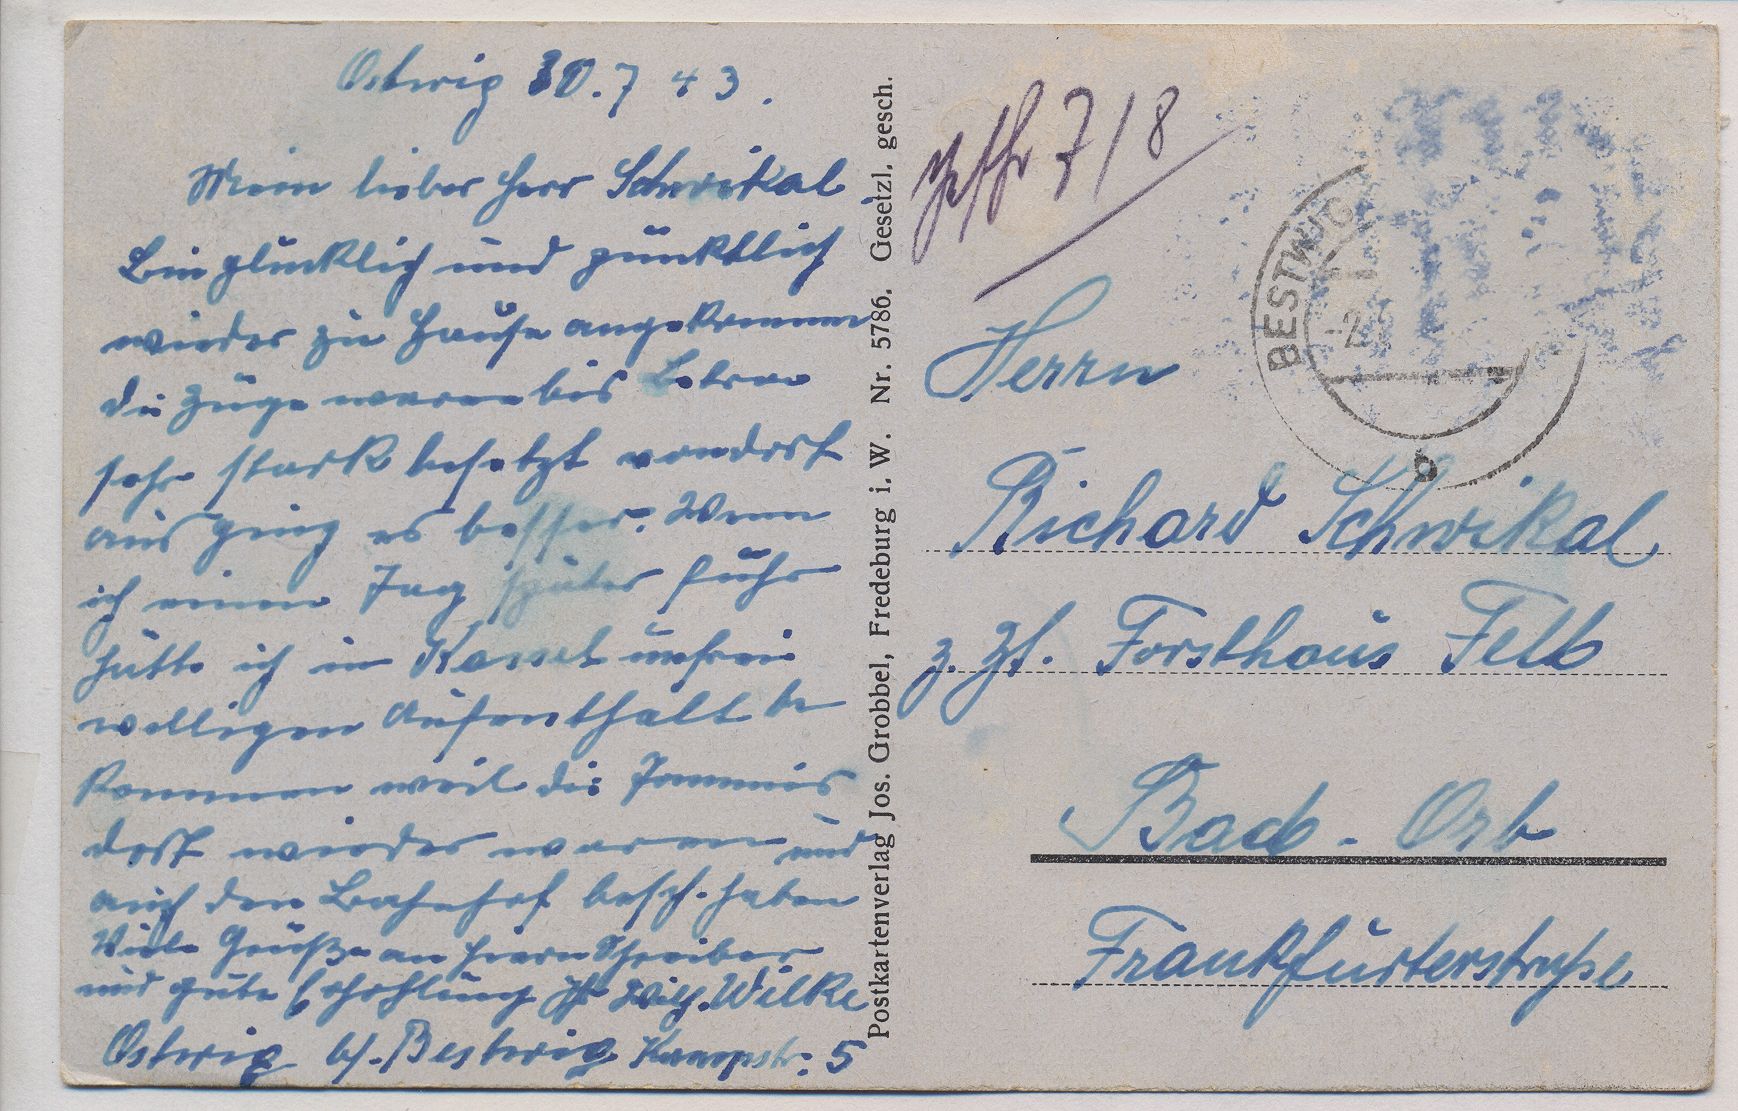 Ostwig 30.7 43.
Mein lieber Herr Schwikal
Bin glücklich und pünktlich
wieder zu Hause angekommen
die Züge waren bis Bebra
sehr stark besetzt von dort
aus ging es besser. Wenn
ich einen Tag später fuhr
hätte ich in Kassel unfrei
willigen Aufenthalt be
kommen weil die Tommis
dort wieder waren und
auch den Bahnhof besch. haben
Viele Grüße an Herrn Schreiber
und gute Erhohlung Ihr Wilh. Wilke
Ostwig b/. Bestwig 5
Postkartenverlag Jos. Grobbel, Fredeburg i. W. Nr. 5786. Gesetzl. gesch.
7/8
BESTWIG
-2.
b
Herrn
Richard Schwikal
z. Zt. Forsthaus Felb
Bad - Orb
Frankfurterstraße